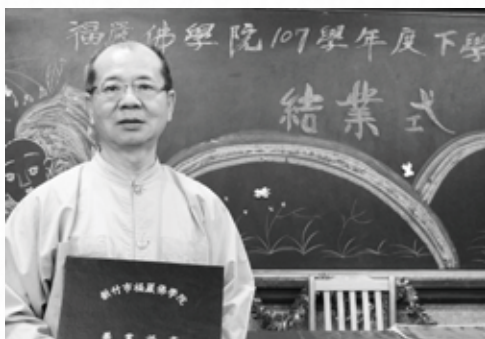 福嚴佛學院107學年度下學
結業式
新竹市福嚴佛學院